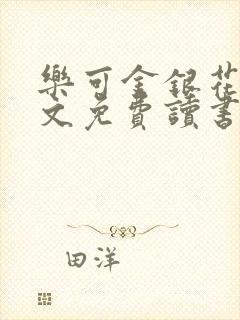 樂可金銀花
文免費讀書
田洋